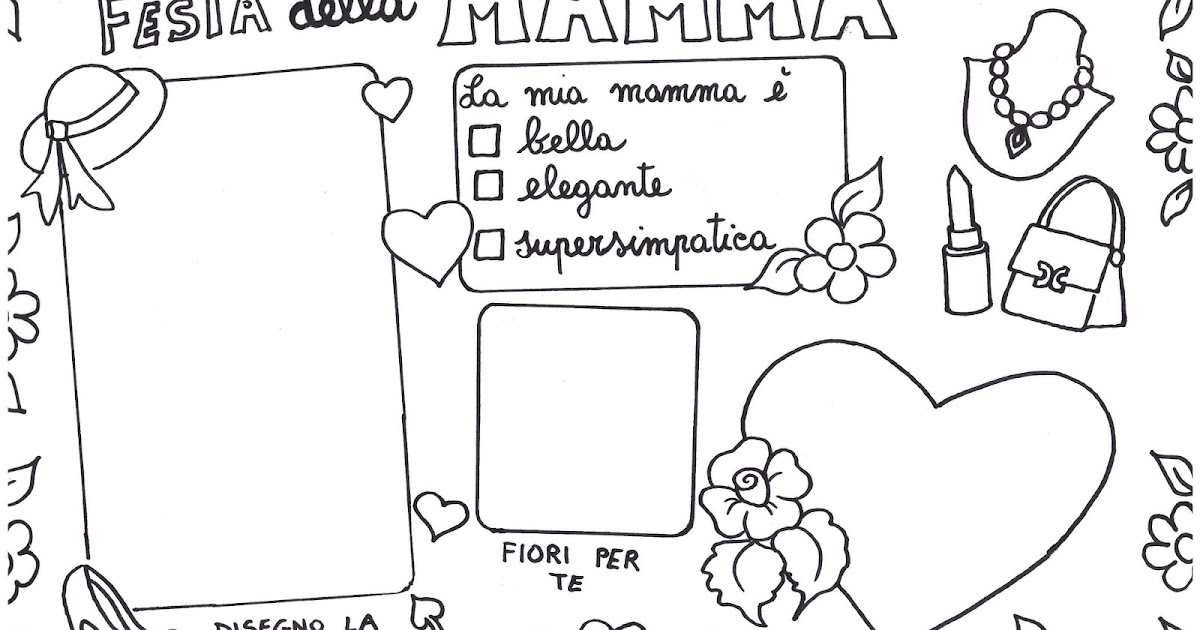 FESTA della MAMMA
La mia mamma è
bella
elegante
supersimpatica
FIORI PER
TE
DISEGNO LA